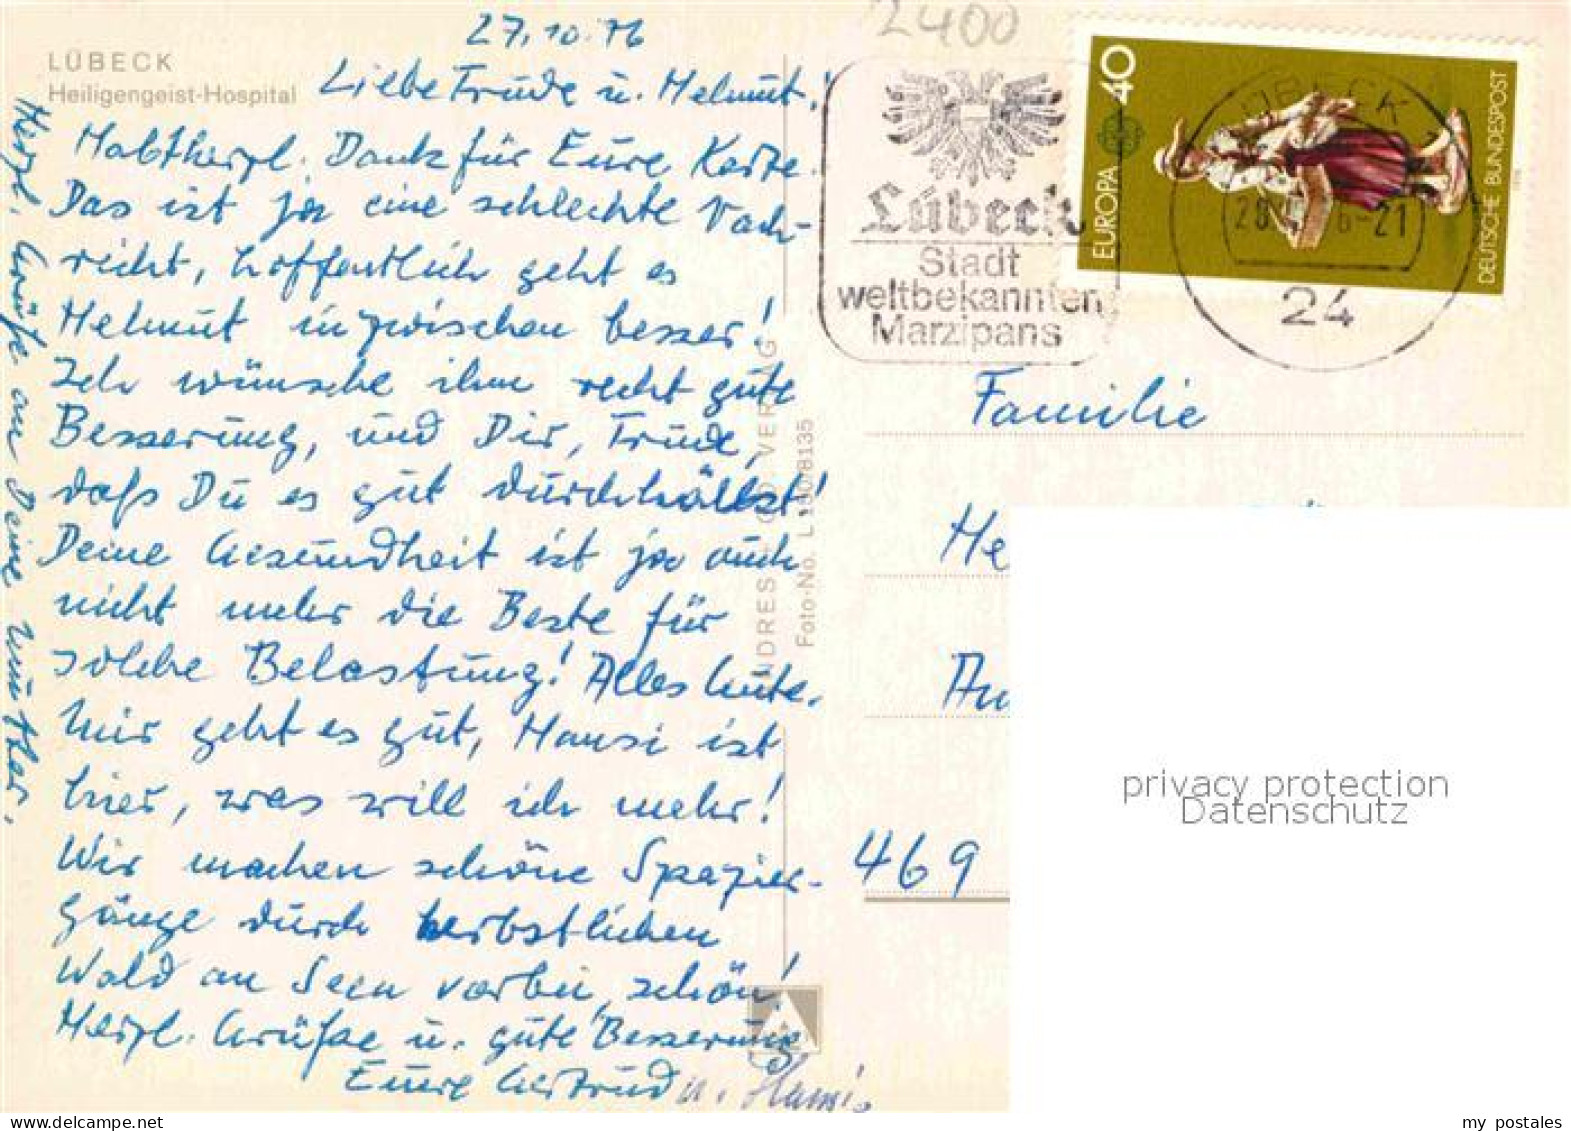 27.10.76
LÜBECK
Heiligengeist-Hospital
Liebe Trude u. Helmut!
Habt herzl. Dank für Eure Karte.
Das ist ja eine schlechte Nach-
richt, hoffentlich geht es
Helmut inzwischen besser!
Ich wünsche ihm recht gute
Besserung, und Dir, Trude,
daß Du es gut durchhältst!
Deine Gesundheit ist ja auch
nicht mehr die Beste für
solche Belastung! Alles Gute.
Mir geht es gut, Hansi ist
hier, was will ich mehr!
Wir machen schöne Spazier-
gänge durch herbstlichen
Wald an Seen vorbei, schön!
Herzl. Grüße u. gute Besserung
Eure Gertrud u. Hansi.
Herzl. Grüße an Deine Mutter.
Foto-No. L 190/8135
2400
Lübeck
Stadt
weltbekannten
Marzipans
40
EUROPA
DEUTSCHE BUNDESPOST
LÜBECK
24
Familie
He
Au
469
privacy protection
Datenschutz
my postales